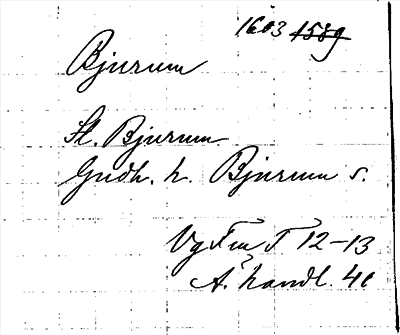 1603 1589
Bjurum
St. Bjurum
Gudh. h. Bjurum s.
Vg Fru T 12-13
A. handl. 41